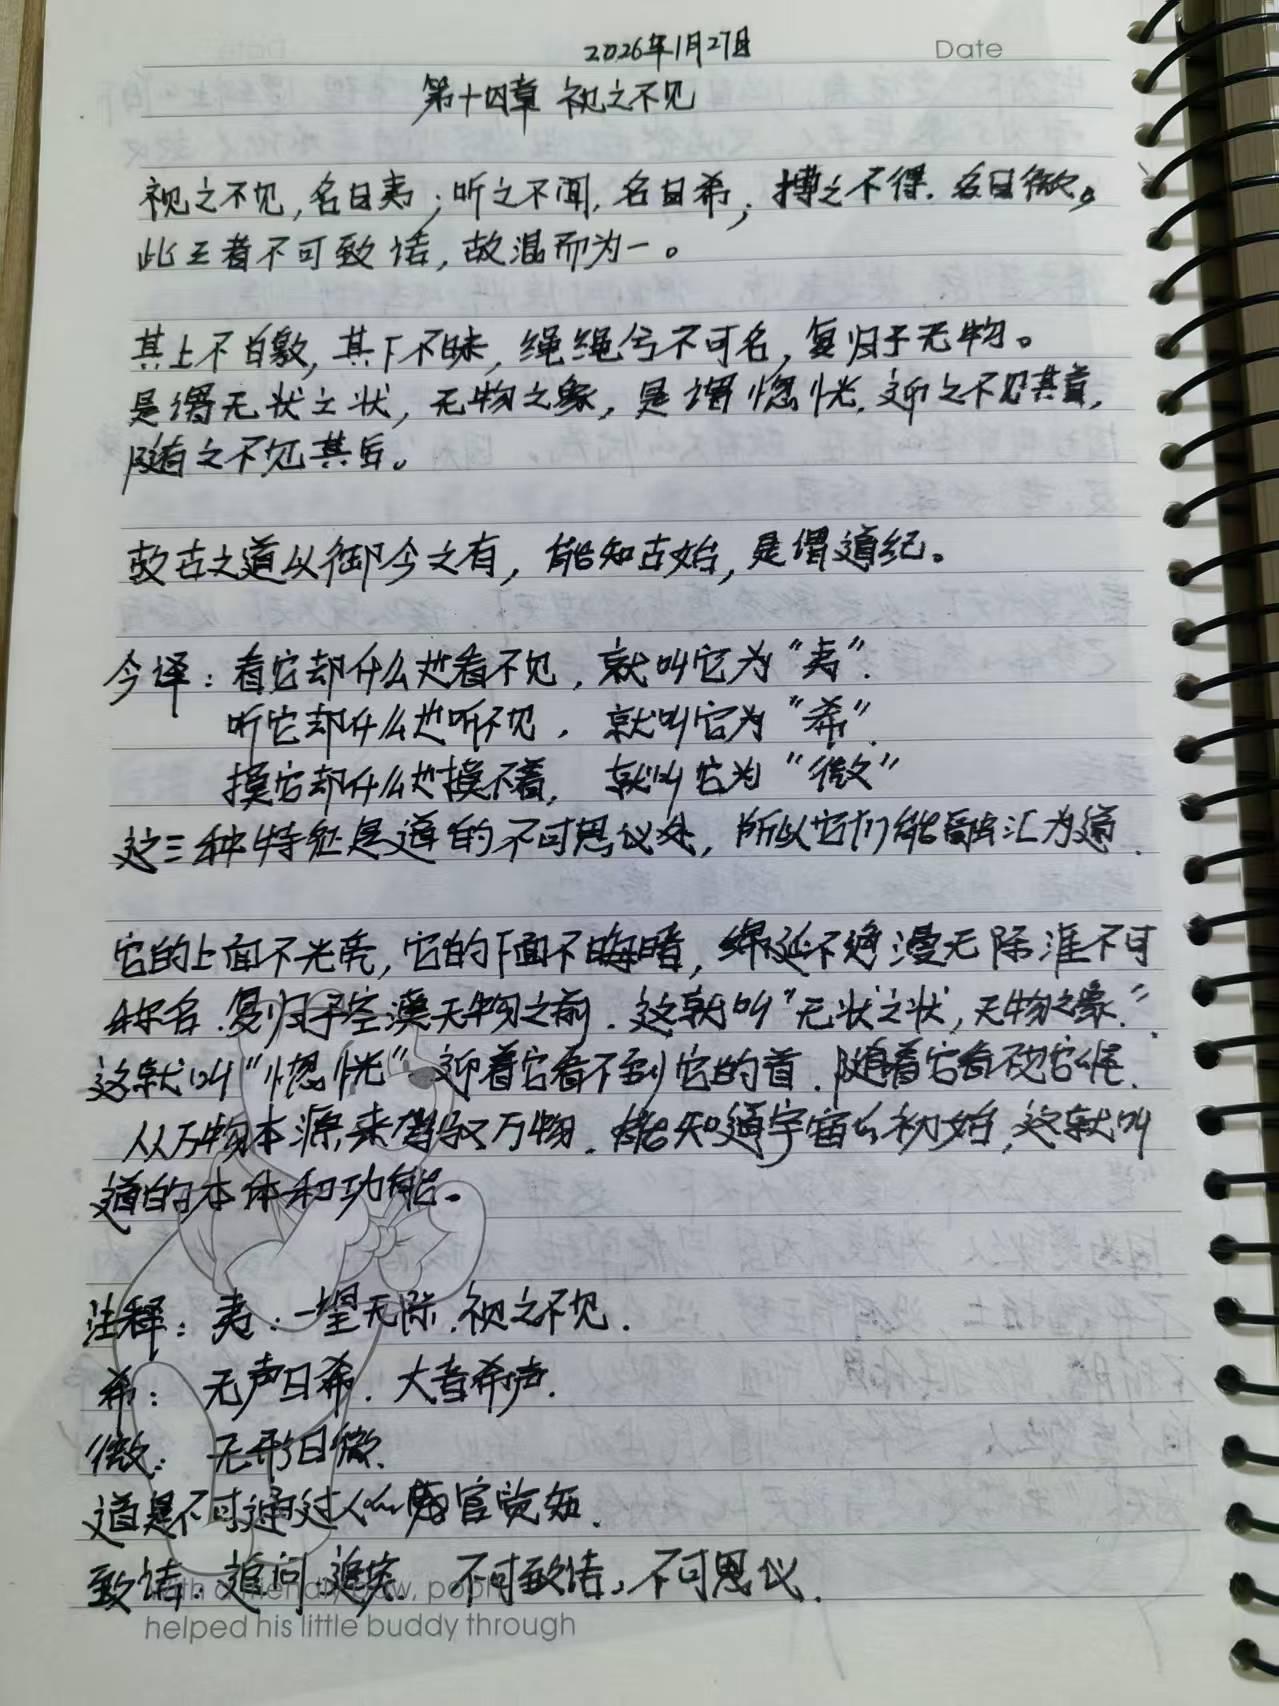 2026年1月27日
Date
第十四章 视之不见
视之不见,名曰夷;听之不闻,名曰希;搏之不得,名曰微。
此三者不可致诘,故混而为一。
其上不白皦,其下不昧,绳绳兮不可名,复归于无物。
是谓无状之状,无物之象,是谓惚恍.迎之不见其首,
随之不见其后。
故古之道以御今之有,能知古始,是谓道纪。
今译:看它却什么也看不见,就叫它为“夷”.
听它却什么也听不见,就叫它为“希”.
摸它却什么也摸不着,就叫它为“微”
这三种特征是道的不可思议处,所以它们能融汇为道.
它的上面不光亮,它的下面不晦暗,绵延不绝漫无际涯不可
称名.复归于空溟无物之前.这就叫“无状之状,无物之象.”
这就叫“惚恍”.迎着它看不到它的首.随着它看不见它尾.
从万物本源来驾驭万物.能知道宇宙的初始,这就叫
道的本体和功能。
注释:夷:一望无际.视之不见.
希:无声曰希.大音希声.
微:无形曰微.
道是不可通过人的感官觉知.
致诘:追问 追究. 不可致诘,不可思议.
helped his little buddy through